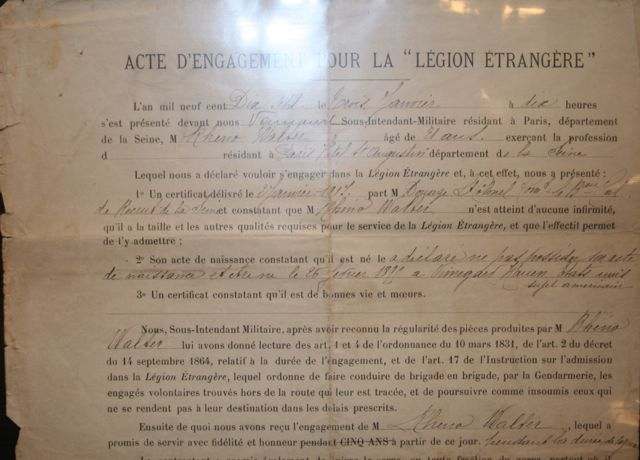 ACTE D'ENGAGEMENT POUR LA "LÉGION ÉTRANGÈRE"
L'an mil neuf cent Dix sept le trois Janvier à dix heures
s'est présenté devant nous Sous-Intendant-Militaire résidant à Paris, département
de la Seine, M Rheno Walter âgé de ans exerçant la profession
d résidant à Paris St Augustin département de la Seine
Lequel nous a déclaré vouloir s'engager dans la Légion Étrangère et, à cet effet, nous a présenté :
1° Un certificat délivré le Janvier 1917 par M
de Recrut de la Seine et constatant que M Rheno Walter n'est atteint d'aucune infirmité,
qu'il a la taille et les autres qualités requises pour le service de la Légion Étrangère, et que l'effectif permet
de l'y admettre ;
2° Son acte de naissance constatant qu'il est né le a déclaré ne pas posséder son acte
de naissance et être né le 26 février à
sujet américain
3° Un certificat constatant qu'il est de bonnes vie et mœurs.
Nous, Sous-Intendant Militaire, après avoir reconnu la régularité des pièces produites par M Rheno
Walter lui avons donné lecture des art. 1 et 4 de l'ordonnance du 10 mars 1831, de l'art. 2 du décret
du 14 septembre 1864, relatif à la durée de l'engagement, et de l'art. 17 de l'Instruction sur l'admission
dans la Légion Étrangère, lequel ordonne de faire conduire de brigade en brigade, par la Gendarmerie, les
engagés volontaires trouvés hors de la route qui leur est tracée, et de poursuivre comme insoumis ceux qui
ne se rendent pas à leur destination dans les délais prescrits.
Ensuite de quoi nous avons reçu l'engagement de M Rheno Walter, lequel a
promis de servir avec fidélité et honneur pendant CINQ ANS à partir de ce jour. pendant la durée de la